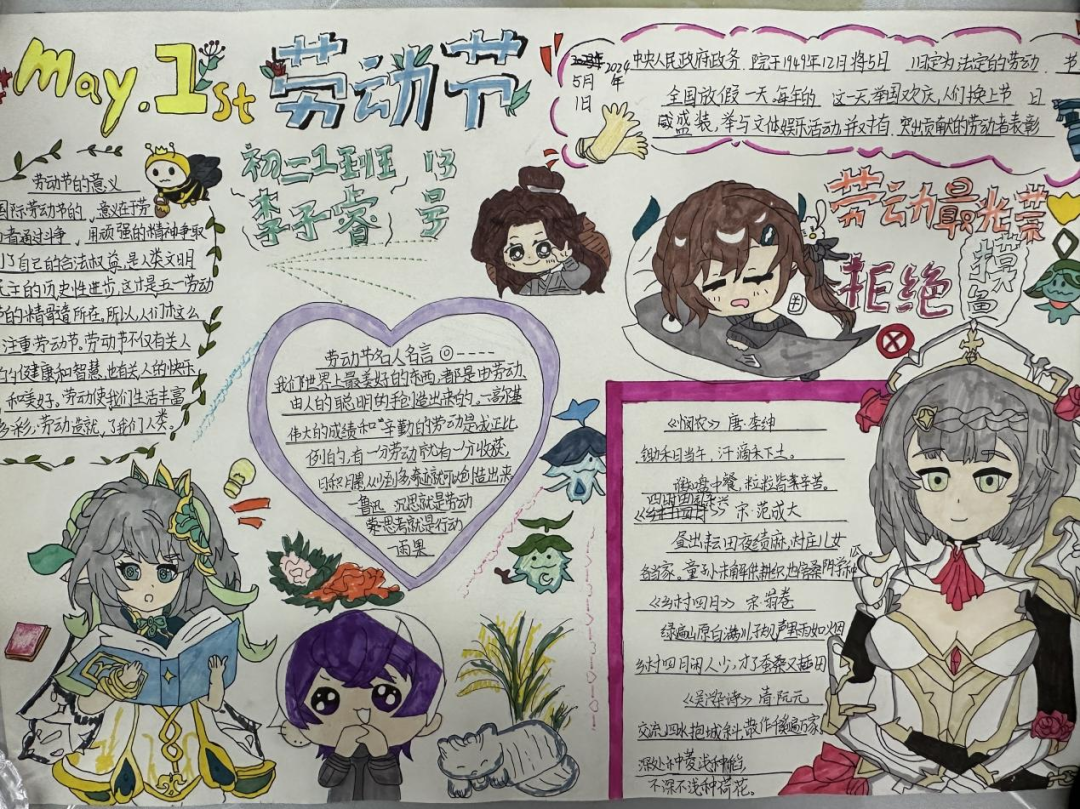 May.1st 劳动节
初二1班 13号
李子睿
劳动节的意义
国际劳动节的，意义在于劳
动者通过斗争，用顽强的精神争取
了自己的合法权益，是人类文明
民主的历史性进步，这才是五一劳动
节的精髓所在。所以，人们才这么
注重劳动节。劳动节不仅有关人
的健康和智慧，也有关人的快乐
和美好。劳动使我们生活丰富
多彩，劳动造就，了我们人类。
2024年
5月
1日
中央人民政府政务院于1949年12月将5月1日定为法定的劳动节
全国放假一天，每年的这一天，举国欢庆，人们换上节日
盛装，举与文体娱乐活动，并对有突出贡献的劳动者表彰
劳动最光荣
拒绝摸鱼
劳动节名人名言
我们世界上最美好的东西，都是由劳动，
由人的聪明的手创造出来的。—高尔基
伟大的成绩和辛勤的劳动是成正比
例的，有一分劳动就有一分收获，
日积月累，从少到多，奇迹就可以创造出来
—鲁迅 沉思就是劳动
思考就是行动
—雨果
《悯农》 唐·李绅
锄禾日当午，汗滴禾下土。
谁知盘中餐，粒粒皆辛苦。
四时田园杂兴 宋·范成大
昼出耘田夜绩麻，村庄儿女
各当家。童孙未解供耕织，也傍桑阴学种瓜。
《乡村四月》 宋·翁卷
绿遍山原白满川，子规声里雨如烟
乡村四月闲人少，才了蚕桑又插田
《吴兴杂诗》 清·阮元
交流四水抱城斜，散作千溪遍万家
深处种菱浅种稻，
不深不浅种荷花。